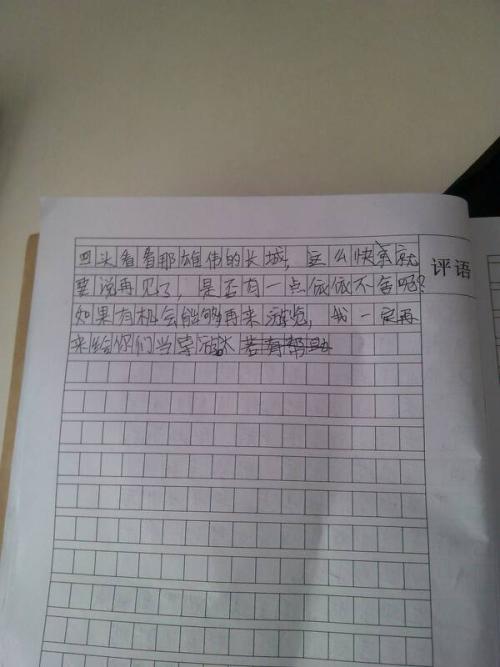 回头看看那雄伟的长城，这么快就
要说再见了，是否有一点依依不舍呢？
如果有机会能够再来游览，我一定再
来给你们当导游
评语